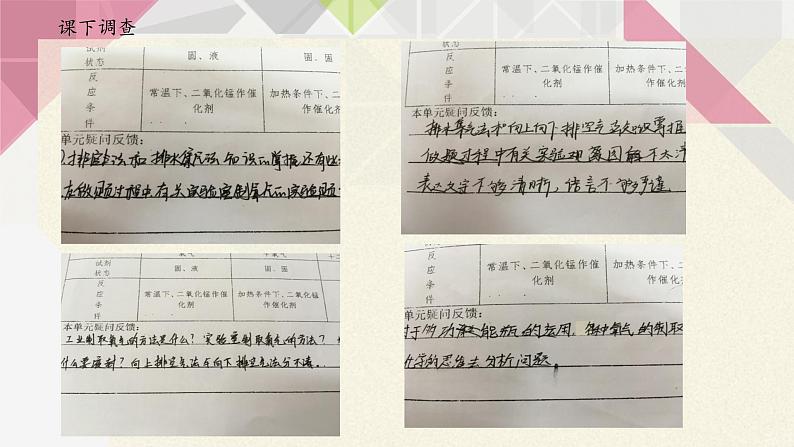 课下调查
试剂
状态
固、液
固、固
反应条件
常温下、二氧化锰作催化剂
加热条件下、二氧化锰作催化剂
本单元疑问反馈：
排空气法和排水集气法知识的掌握还有些
在做题过程中有关实验室制氧气的实验题
反应条件
常温下、二氧化锰作催化剂
加热条件下、二氧化锰作催化剂
本单元疑问反馈：
排水集气法和向上向下排空气
做题过程中有关实验现象图解不太清
表达文字不够清晰，语言不够严谨
试剂
状态
固、液
固、固
反应条件
常温下、二氧化锰作催化剂
加热条件下、二氧化锰作催化剂
本单元疑问反馈：
工业制取氧气的方法是什么？实验室制取氧气的方法？
什么要原料？向上排空气法与向下排空气法分不清。
状态
反应条件
常温下、二氧化锰作催化剂
加热条件下、二作催化剂
本单元疑问反馈：
对于多功能瓶的运用，氧气的制取
化学的思维去分析问题。